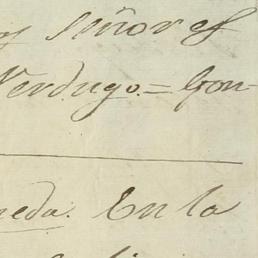 Señores
Verdugo.= Gon-
neda. En la